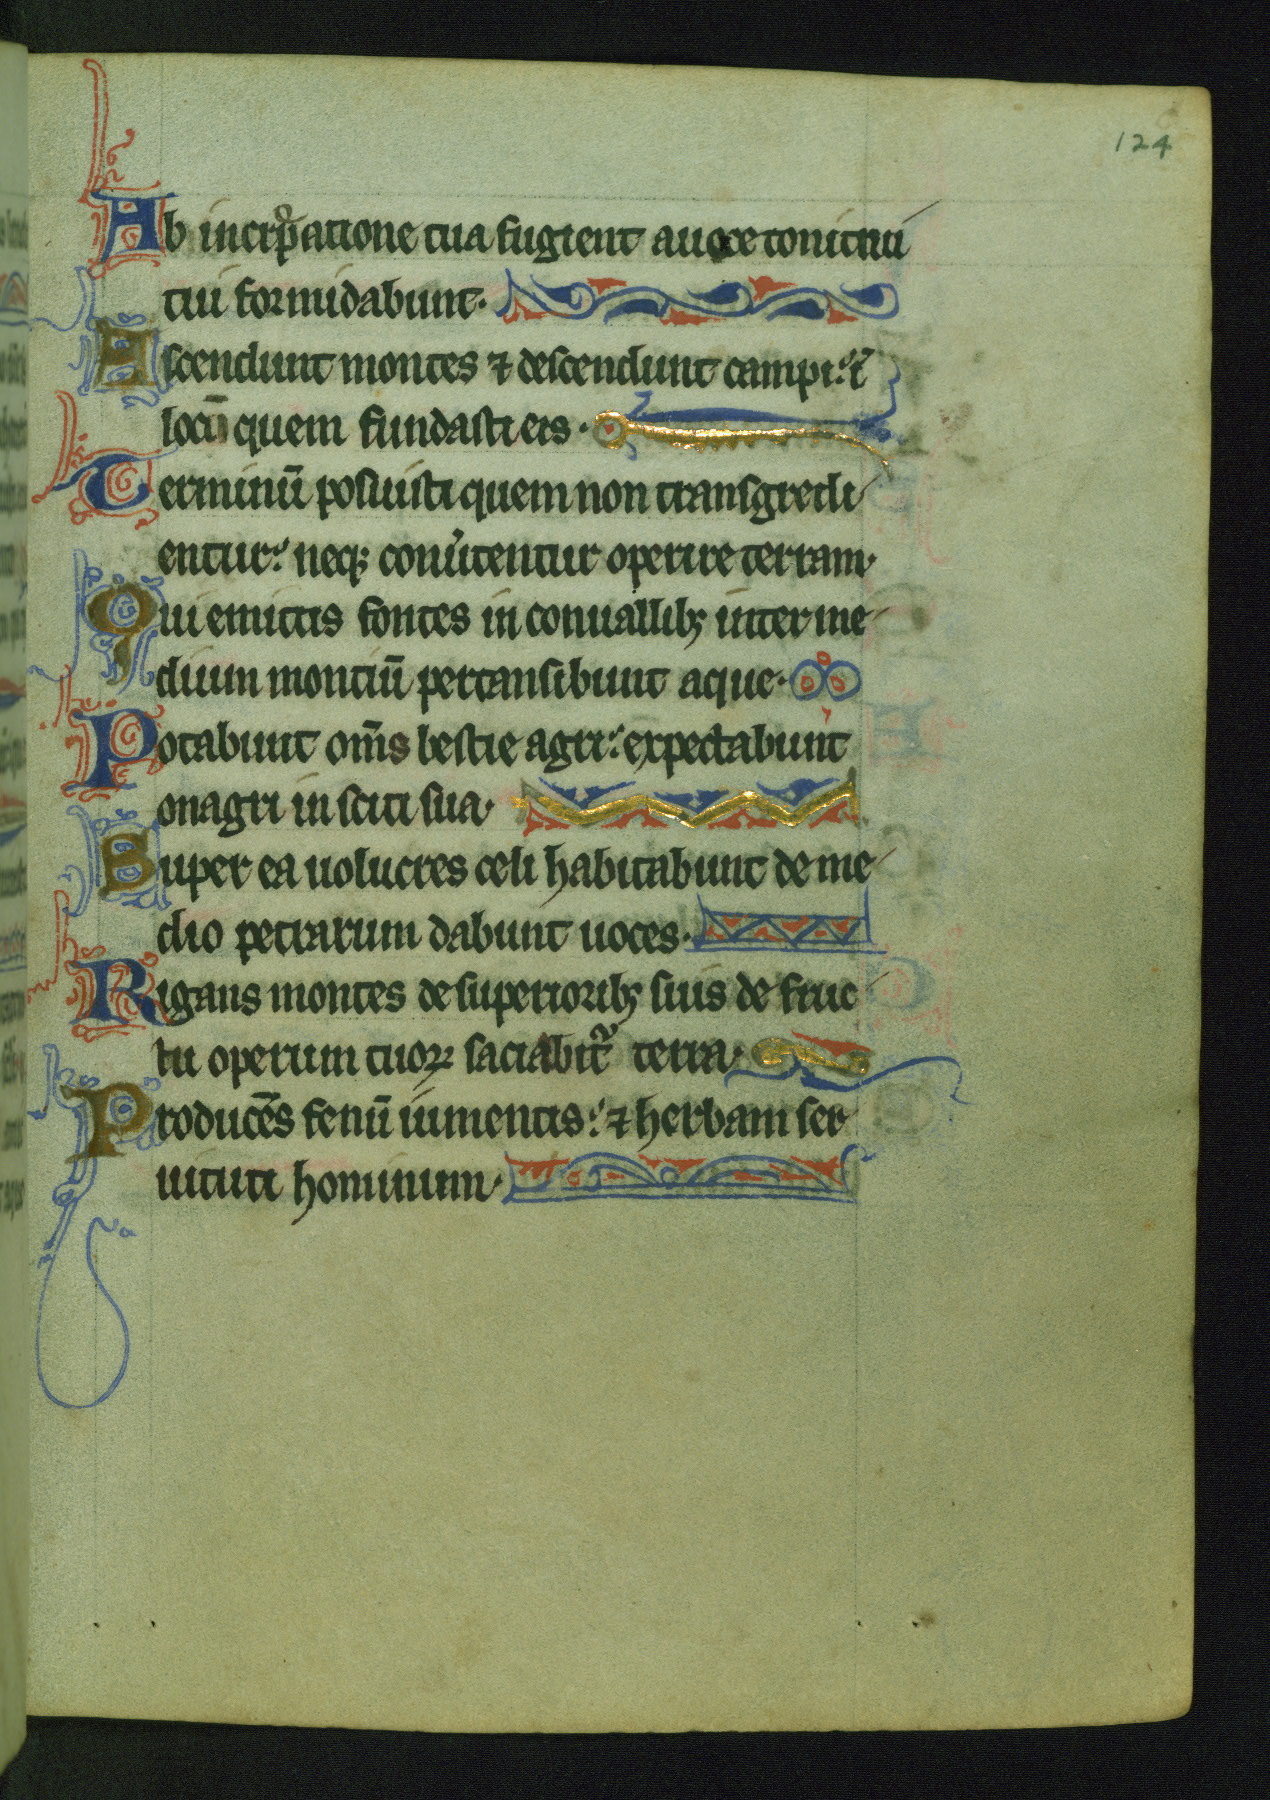 124
Ab incrꝑatione tua fugient a uoce tonitrui
tui formidabunt·
Ascendunt montes ⁊ descendunt campi: ĩ
locū quem fundasti eis·
Terminū posuisti quem non transgredi
entur: neqꝫ conuͥtentur operire terram·
Qui emittis fontes in conuallibꝫ inter me
dium montiū pertansibunt aque·
Potabunt om̄s bestie agri: expectabunt
onagri in siti sua·
Super ea uolucres celi habitabunt de me
dio petrarum dabunt uoces·
Rigans montes de superioribꝫ suis de fruc
tu operum tuoꝝ saciabit᷑ terra·
Producēs fenū iumentis: ⁊ herbam ser
uituti hominum·